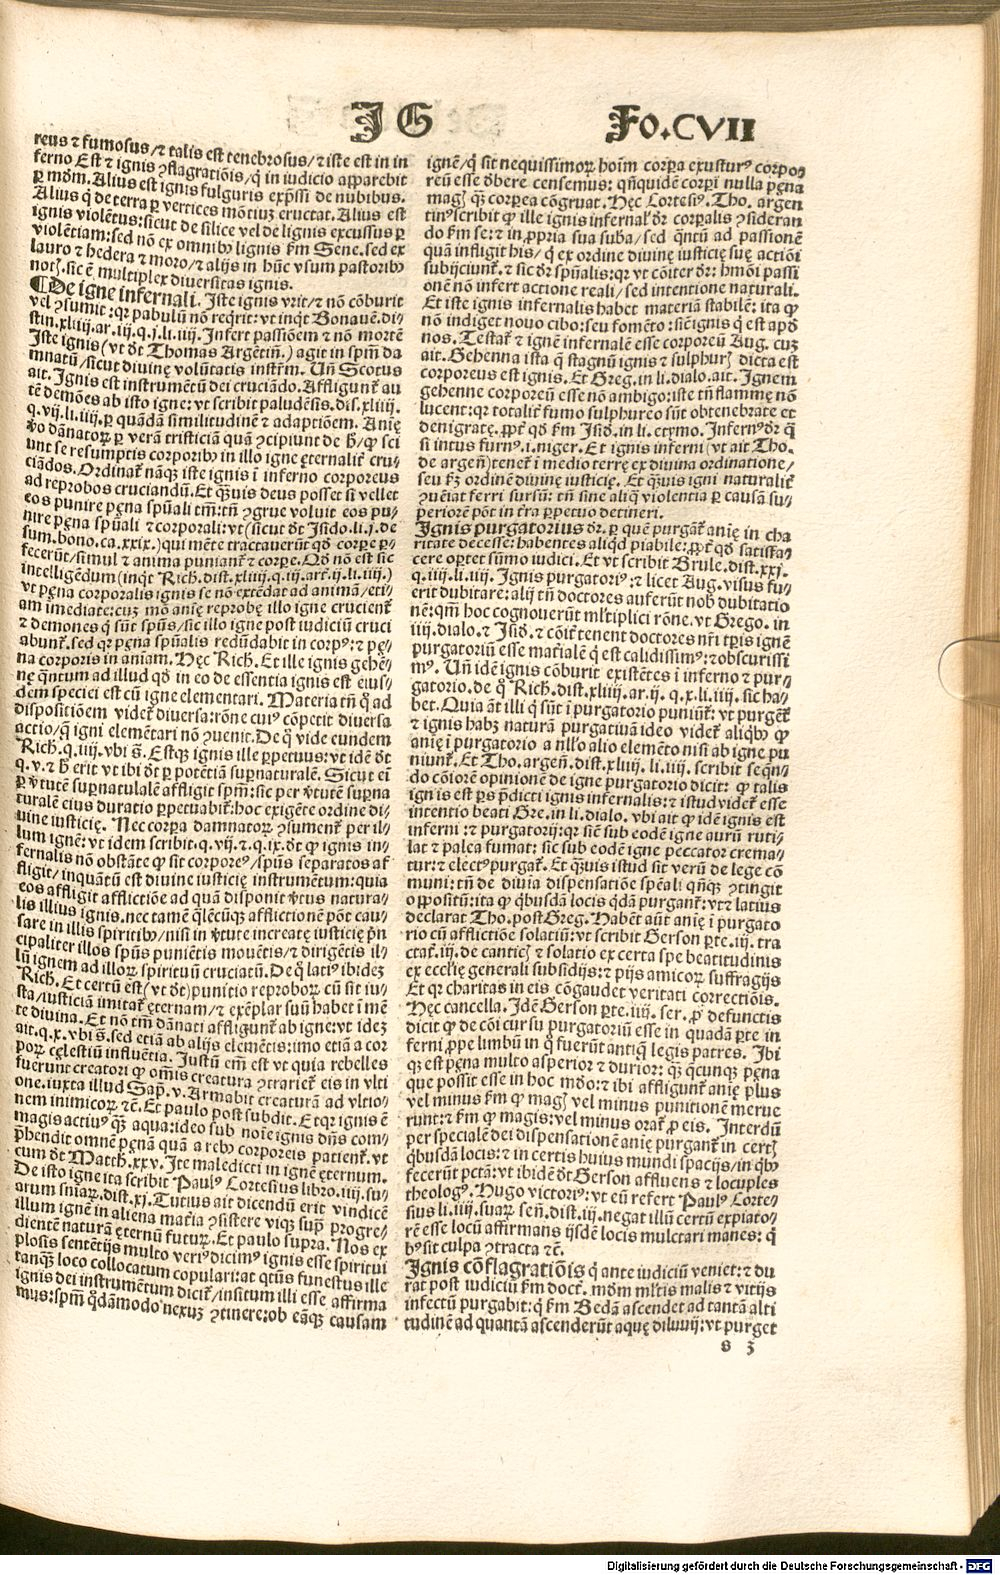 IG
Fo.CVII
reus ⁊ fumosus/⁊ talis est tenebrosus/⁊ iste est in in
ferno Est ⁊ ignis ꝯflagratiōis/q̇ in iudicio apparebit
ꝑ mōm. Alius est ignis fulguris exp̄ssi de nubibus.
Alius q̇ de terra ꝑ vertices mōtiuz eructat. Alius est
ignis violētus: sicut de silice vel de lignis excussus ꝑ
violētiam: sed nō ex omnibꝰ lignis ẜm Sene. sed ex
lauro ⁊ hedera ⁊ moro/⁊ alijs in hūc vsum pastoribꝰ
notꝭ. sic ē multiplex diuersitas ignis.
¶De igne infernali. Iste ignis vrit/⁊ nō cōburit
vel ꝯsumit: qꝛ pabulū nō reqͥrit: vt inqͭ Bonauē. di-
stin. xliiij. ar. iij. q. j. li. iiij. Infert passiōem ⁊ nō mortē
Iste ignis (vt dt̄ Thomas Argētiñ.) agit in spm̄ da
mnatū/sicut diuinę volūtatis instr̄m. Uñ Scotus
ait. Ignis est instrumētū dei cruciādo. Affligunt̄ au
tē demōes ab isto igne: vt scribit paludēsis. dis. xliiij.
q. vij. li. iiij. ꝑ quandā similitudinē ⁊ adaptiōem. Anię
ṽo dānatoꝝ ꝑ verā tristiciā quā ꝯcipiunt de ħ/ꝙ sci
unt se resumptis corporibꝰ in illo igne ęternalit̄ cru-
ciādos. Ordinat̄ nāqꝫ iste ignis ī inferno corporeus
ad reprobos cruciandū. Et qͣuis deus posset si vellet
eos punire pęna spūali tm̄: tñ ꝯgrue voluit eos pu-
nire pęna spūali ⁊ corporali: vt (sicut dt̄ Isido. li. j. de
sum. bono. ca. xxix.) qui mēte tractauerūt qd̄ corpe ꝑ-
fecerūt/simul ⁊ anima puniant̄ ⁊ corpe. Qd̄ nō est sic
intelligēdum (inqͭ Rich. dist. xliiij. q. iij. art. ij. li. iiij.)
vt pęna corporalis ignis se nō extēdat ad animā/eti-
am īmediate: cuz mō anię reprobę illo igne crucient̄
⁊ demones q̇ sūt spūs/sic illo igne post iudiciū cruci
abunt̄. sed qꝛ pęna spūalis redūdabit in corpꝰ: ⁊ pę-
na corporis in aniam. Hęc Rich. Et ille ignis gehē-
nę qͣntum ad illud qd̄ in eo de essentia ignis est eius-
dem speciei est cū igne elementari. Materia tñ q̇ ad
dispositiōem videt̄ diuersa: rōne cuiꝰ cōpetit diuersa
actio/q̇ igni elemētari nō ꝯuenit. De q̊ vide eundem
Rich. q. iiij. vbi s̄. Estqꝫ ignis ille ꝑpetuus: vt idē dt̄
q. v. ⁊ ħ erit vt ibi dt̄ ꝑ potētiā suꝑnaturalē. Sicut ei̅
ꝑ ṽtutē suꝑnatulalē affligit spm̄: sic per ṽtutē suꝑna
turalē eius duratio ꝑpetuabit̄: hoc exigēte ordine di-
uine iusticię. Nec corpa damnatoꝝ ꝯsument̄ per il-
lum ignē: vt idem scribit. q. vij. ⁊. q. ix. dt̄ ꝙ ignis in-
fernalis nō obstāte ꝙ sit corporeꝰ/spūs separatos af
fligit/inquātū est diuine iusticię instrumētum: quia
eos affligit afflictiōe ad quā disponit ṽtus natura-
lis illius ignis. nec tamē qͣlēcūqꝫ afflictionē pōt cau-
sare in illis spiritibꝰ/nisi in ṽtute increatę iusticię pͥn
cipaliter illos spūs punientis mouētis/⁊ dirigētis il-
lū ignem ad illoꝝ spirituū cruciatū. De q̊ latiꝰ ibidez
Rich. Et certū est (vt dt̄) punitio reproboꝝ cū sit iu-
sta/iusticiā imitat̄ ęternam/⁊ exēplar suū habet ī mē
te diuina. Et nō tm̄ dānati affligunt̄ ab igne: vt idez
ait. q. x. vbi s̄. sed etiā ab alijs elemētis: imo etiā a cor
poꝝ cęlestiū influētia. Justū em̄ est vt quia rebelles
fuerunt creatori ꝙ om̄is creatura ꝯtrariet̄ eis in vlti
one. iuxta illud Sap̄. v. Armabit creaturā ad vltio-
nem inimicoꝝ ⁊c̄. Et paulo post subdit. Et qꝛ ignis ē
magis actiuꝰ qͣꝫ aqua: ideo sub noīe ignis dñs com-
p̄hendit omnē pęnā quā a rebꝰ corporeis patient̄. vt
cum dt̄ Matth. xxv. Ite maledicti in ignē ęternum.
De isto igne ita scribit Paulꝰ Cortesius libro. iiij. su-
arum sniaꝝ. dist. xj. Tutius ait dicendū erit vindicē
illum ignē in aliena mat̄ia ꝯsistere viqꝫ suꝑ progre-
dientē naturā ęternū futuꝝ. Et paulo supra. Nos ex
plosis sentētijs multo veriꝰ dicimꝰ ignis esse spiritui
tanqͣꝫ loco collocatum copulari: at qͣtūs funestus ille
ignis dei instrumētum dicit̄/insitum illi esse affirma
mus: spm̄ qͦdāmodo nexuz ꝯtinere: ob eāqꝫ causam
ignē/q̇ sit nequissimoꝝ hoīm corpa exusturꝰ corpo-
reū esse d̄bere censemus: qn̄quidē corpī nulla pęna
magꝭ qͣꝫ corpea cōgruat. Hęc Cortesiꝰ. Tho. argen
tinꝰ scribit ꝙ ille ignis infernal̄ dr̄ corpalis ꝯsideran
do ẜm se: ⁊ in ꝓpria sua suba/sed qͣntū ad passionē
quā infligit his/q̇ ex ordine diuinę iusticię suę actiōi
subijciunt̄. ⁊ sic dr̄ spūalis: qꝛ vt cōiter dr̄: hmōi passi
onē nō infert actione reali/sed intentione naturali.
Et iste ignis infernalis habet materiā stabilē: ita ꝙ
nō indiget nouo cibo: seu fomēto: siē ignis q̇ est apd̄
nos. Testat̄ ⁊ ignē infernalē esse corporeū Aug. cuz
ait. Gehenna ista q̇ stagnū ignis ⁊ sulphurꝭ dicta est
corporeus est ignis. Et Greg. in li. dialo. ait. Ignem
gehenne corporeū esse nō ambigo: iste tñ flammę nō
lucent: qꝛ totalit̄ fumo sulphureo sūt obtenebrate et
denigratę. ꝓpt̄ qd̄ ẜm Isid̄. in li. etymo. Infernꝰ dr̄ q̇
si intus furnꝰ. i. niger. Et ignis inferni (vt ait Tho.
de argeñ) tenet̄ ī medio terrę ex diuina ordinatione/
seu ẜꝫ ordinē diuinę iusticię. Et qͣuis igni naturalit̄
ꝯueniat ferri sursū: tñ sine aliq̄ violentia ꝑ causā su-
periorē pōt in tr̄a ꝑpetuo detineri.
Ignis purgatorius dr̄. ꝑ quē purgāt̄ anię in cha
ritate decesse: habentes aliqd̄ piabile: ꝓpt̄ qd̄ satisfa-
cere oꝑtet sūmo iudici. Et vt scribit Brule. dist. xxj.
q. iiij. li. iiij. Ignis purgatoriꝰ: ⁊ licet Aug. visus fu-
erit dubitare: alij tñ doctores auferūt nob̄ dubitatio
nē: qm̄ hoc cognouerūt ml̄tiplici rōne. vt Grego. in
iiij. dialo. ⁊ Isid̄. ⁊ cōit̄ tenent doctores nr̄i tꝑis ignē
purgatoriū esse mat̄ialē q̇ est calidissimꝰ: ⁊ obscurissi
mꝰ. Uñ idē ignis cōburit existētes ī inferno ⁊ pur-
gatorio. de q̊ Rich. dist. xliiij. ar. ij. q. x. li. iiij. sic ha-
bet. Quia āt illi q̇ sūt ī purgatorio puniūt̄: vt purgēt̄
⁊ ignis habz naturā purgatiuā ideo videt̄ aliqͥbꝰ ꝙ
anię ī purgatorio a nll̄o alio elemēto nisi ab igne pu
niunt̄. Et Tho. argeñ. dist. xliiij. li. iiij. scribit seqͣn-
do cōiorē opinionē de igne purgatorio dicit: ꝙ talis
ignis est ps p̄dicti ignis infernalis: ⁊ istud videt̄ esse
intentio beati Gre. in li. dialo. vbi ait ꝙ idē ignis est
inferni: ⁊ purgatorij: qꝛ siē sub eodē igne aurū ruti-
lat ⁊ palea fumat: sic sub eodē igne peccator crema-
tur: ⁊ electꝰ purgat̄. Et qͣuis istud sit verū de lege cō
muni: tñ de diuīa dispensatiōe spēali qn̄qꝫ ꝯtingit
oppositū: ita ꝙ qͥbusdā locis qͥdā purgant̄: vtz latius
declarat Tho. post Greg. Habēt aūt anię ī purgato
rio cū afflictiōe solatiū: vt scribit Gerson ꝑte. iij. tra
ctat̄. iij. de canticꝭ ⁊ solatio ex certa spe beatitudinis
ex eccl̄ię generali subsidijs: ⁊ pijs amicoꝝ suffragijs
Et qꝛ charitas in eis cōgaudet veritati correctiōis.
Hęc cancella. Idē Gerson ꝑte. iiij. ser. ꝓ defunctis
dicit ꝙ de cōi cursu purgatoriū esse in quadā ꝑte in
ferni ꝓpe limbū in q̊ fuerūt antiqͥ legis patres. Ibi
qꝫ est pęna multo asperior ⁊ durior: qͣꝫ q̄cunqꝫ pęna
que possit esse in hoc mōo: ⁊ ibi affligunt̄ anię plus
vel minus ẜm ꝙ magꝭ vel minus punitionē merue
runt: ⁊ ẜm ꝙ magis: vel minus orat̄ ꝓ eis. Interdū
per specialē dei dispensationē anię purgant̄ in certꝭ
qͥbusdā locis: ⁊ in certis huius mundi spacijs/in qͥbꝰ
fecerūt pctā: vt ibidē dt̄ Gerson affluens ⁊ locuples
theologꝰ. Hugo victoriꝰ: vt eū refert Paulꝰ Corte-
sius li. iiij. suaꝝ señ. dist. iij. negat illū certū expiato-
rē esse locū affirmans ijsdē locis mulctari manes: q̇
bꝰ sit culpa ꝯtracta ⁊c̄.
Ignis cōflagratiōis q̇ ante iudiciū veniet: ⁊ du
rat post iudiciū ẜm doct̄. mōm ml̄tis malis ⁊ vitijs
infectū purgabit: q̇ ẜm Bedā ascendet ad tantā alti
tudinē ad quantā ascenderūt aquę diluuij: vt purget
s 3
Digitalisierung gefördert durch die Deutsche Forschungsgemeinschaft - DFG